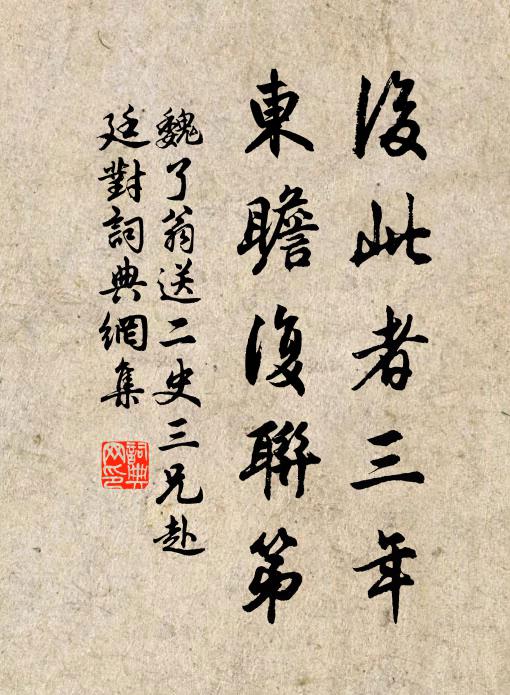 後此者三年
東瞻復聯第
魏了翁送二史三兄赴
廷對詞典網集
詞典網印